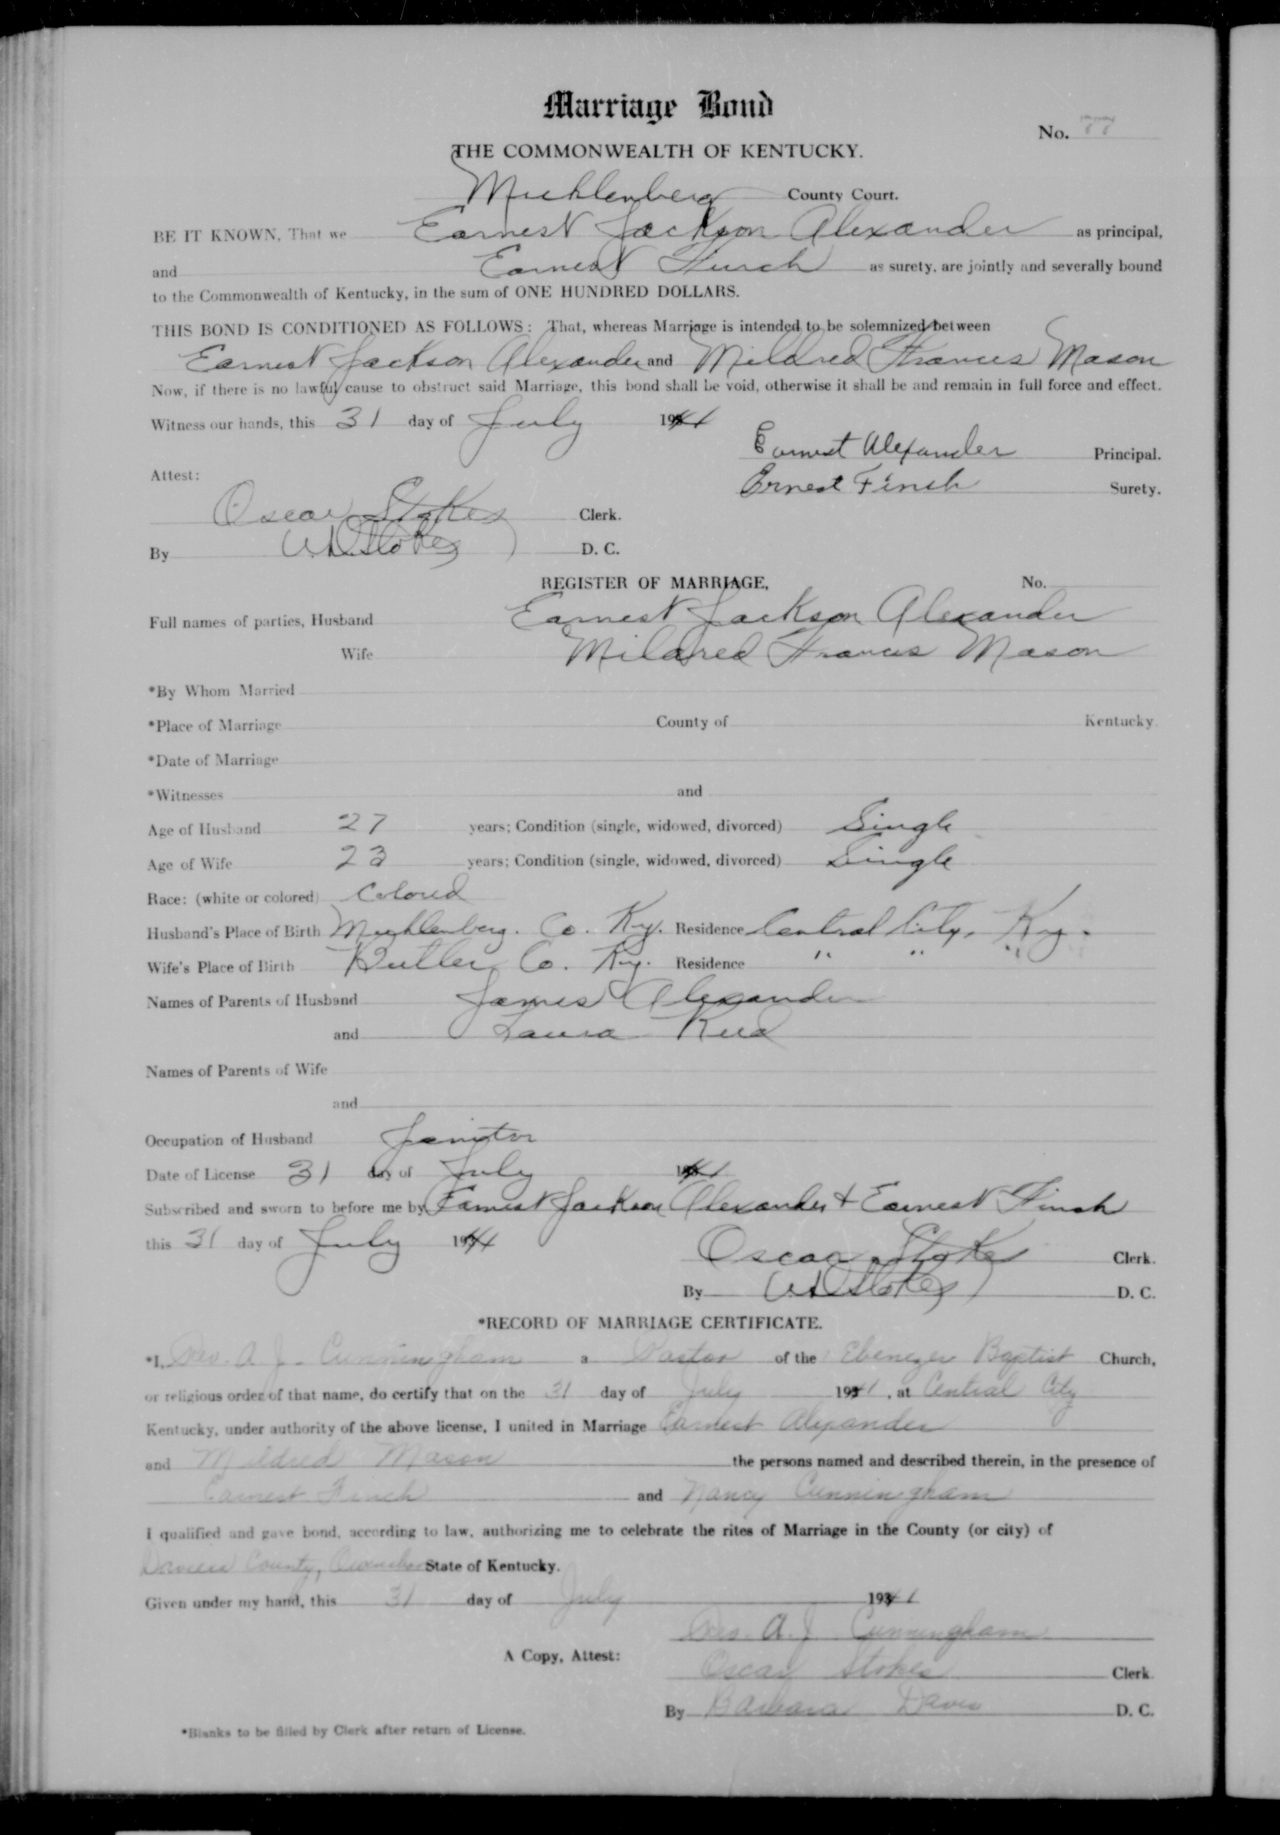 Marriage Bond
No. 77
THE COMMONWEALTH OF KENTUCKY.
Muhlenberg County Court.
BE IT KNOWN, That we Earnest Jackson Alexander as principal,
and Earnest Finch as surety, are jointly and severally bound
to the Commonwealth of Kentucky, in the sum of ONE HUNDRED DOLLARS.
THIS BOND IS CONDITIONED AS FOLLOWS: That, whereas Marriage is intended to be solemnized between
Earnest Jackson Alexander and Mildred Frances Mason
Now, if there is no lawful cause to obstruct said Marriage, this bond shall be void, otherwise it shall be and remain in full force and effect.
Witness our hands, this 31 day of July 1941
Earnest Alexander Principal.
Attest:
Ernest Finch Surety.
Oscar Stokes Clerk.
By W D Stokes D. C.
REGISTER OF MARRIAGE, No.
Full names of parties, Husband Earnest Jackson Alexander
Wife Mildred Frances Mason
*By Whom Married
*Place of Marriage County of Kentucky
*Date of Marriage
*Witnesses and
Age of Husband 27 years; Condition (single, widowed, divorced) Single
Age of Wife 23 years; Condition (single, widowed, divorced) Single
Race: (white or colored) Colored
Husband's Place of Birth Muhlenberg. Co. Ky. Residence Central City, Ky.
Wife's Place of Birth Butler Co. Ky. Residence " " "
Names of Parents of Husband James Alexander
and Laura Reed
Names of Parents of Wife
and
Occupation of Husband Janitor
Date of License 31 day of July 1941
Subscribed and sworn to before me by Earnest Jackson Alexander + Earnest Finch
this 31 day of July 1941
Oscar Stokes Clerk.
By W D Stokes D. C.
*RECORD OF MARRIAGE CERTIFICATE.
*I, Rev. A. J. Cunningham a Pastor of the Ebenezer Baptist Church,
or religious order of that name, do certify that on the 31 day of July 1941, at Central City
Kentucky, under authority of the above license, I united in Marriage Earnest Alexander
and Mildred Mason the persons named and described therein, in the presence of
Earnest Finch and Nancy Cunningham
I qualified and gave bond, according to law, authorizing me to celebrate the rites of Marriage in the County (or city) of
Daviess County, State of Kentucky.
Given under my hand, this 31 day of July 1941
Rev. A. J. Cunningham
A Copy, Attest:
Oscar Stokes Clerk
By Barbara Davis D. C.
*Blanks to be filled by Clerk after return of License.